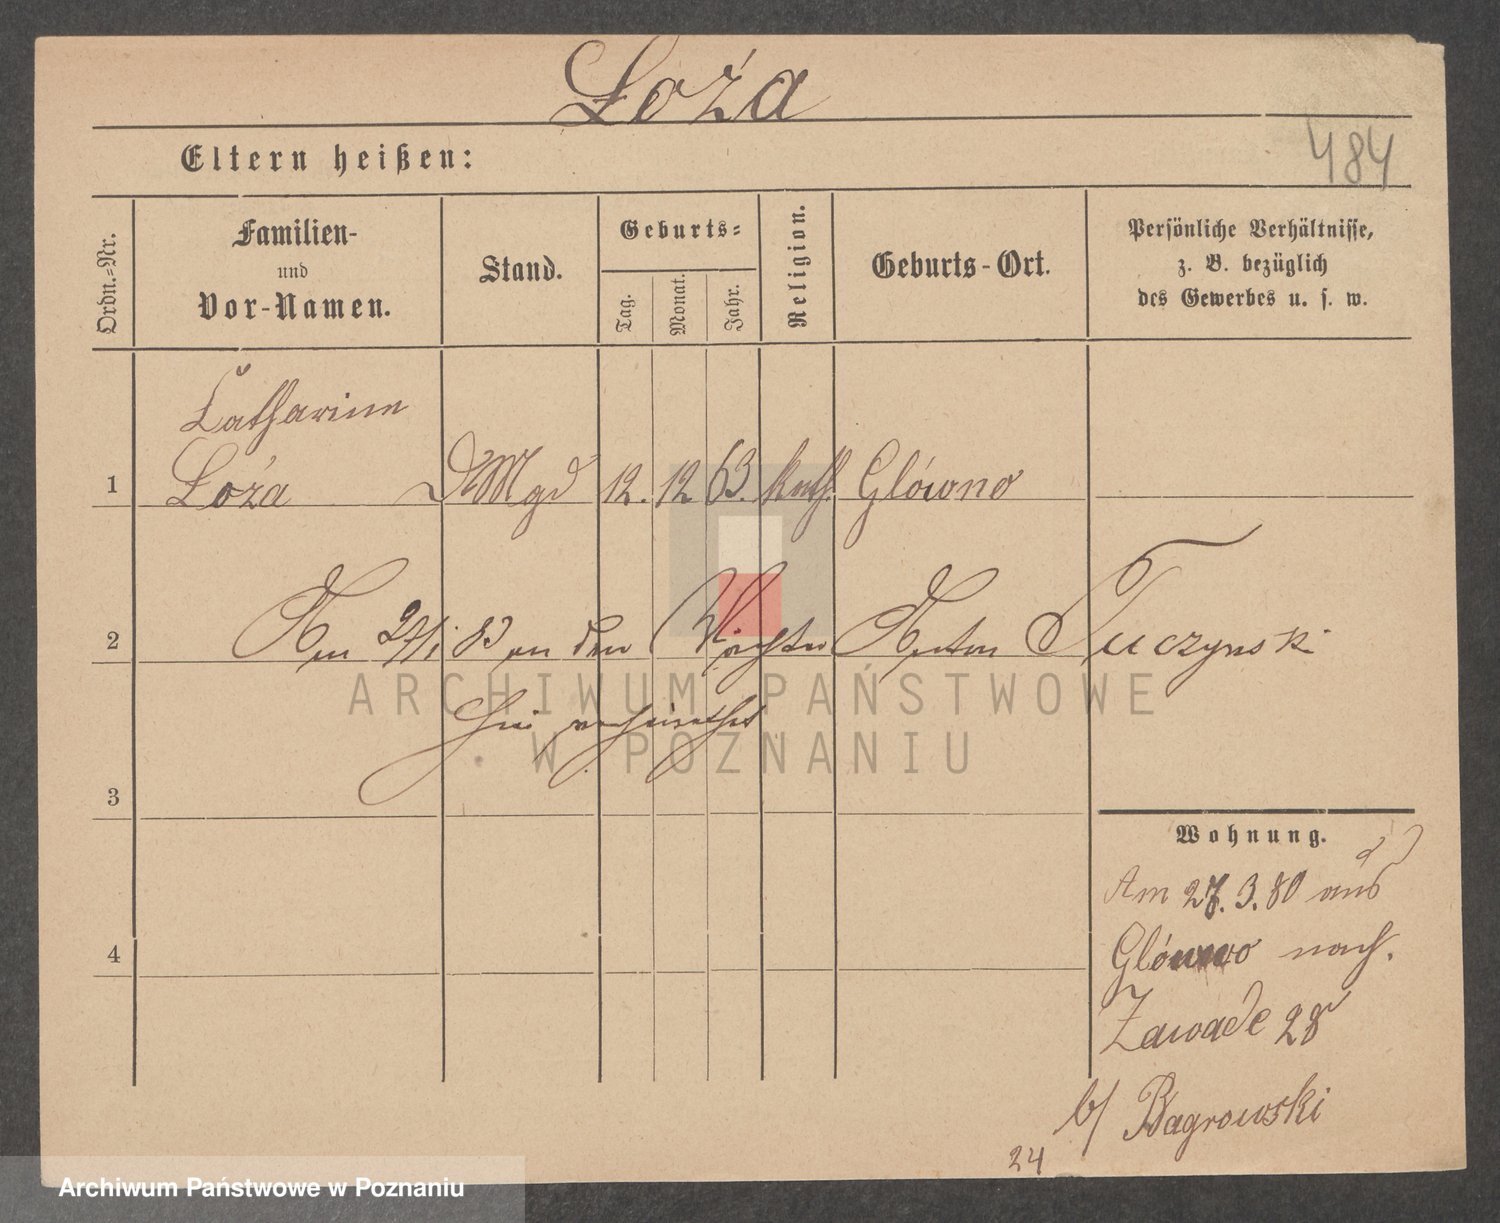 Łoża
484
Eltern heißen:
Ordn.-Nr.
Familien-
und
Vor-Namen.
Stand.
Geburts-
Tag.
Monat.
Jahr.
Religion.
Geburts-Ort.
Persönliche Verhältnisse,
z. B. bezüglich
des Gewerbes u. s. w.
Catharine
1 Łoża DMgd 12. 12 63. kath. Glówno
2 Am 27/1 83 an den Wächter Anton Tuczynski
hier verheirathet
3
4
Wohnung.
Am 27. 3. 80 aus
Glówno nach.
Zawade 28
b/ Bagrowski
24
ARCHIWUM PAŃSTWOWE
W POZNANIU
Archiwum Państwowe w Poznaniu